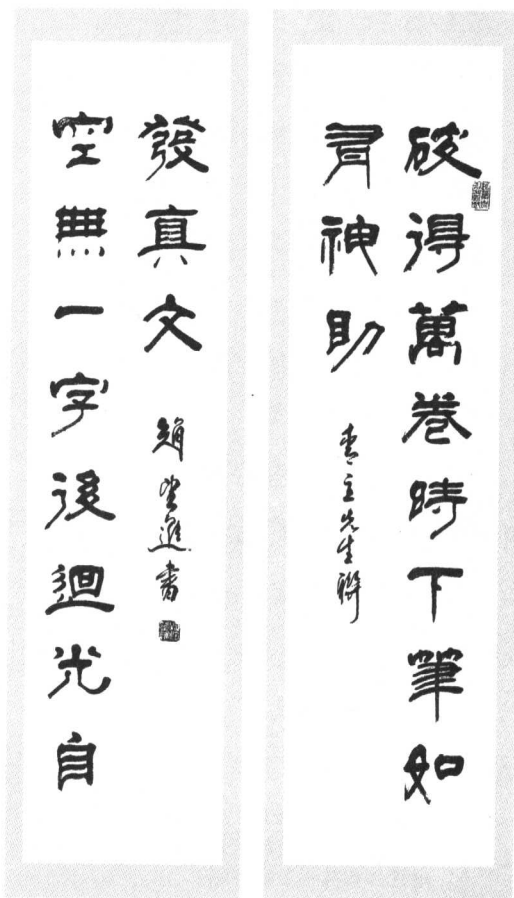 破得萬卷時下筆如
有神助
青主先生聯
空無一字後迴光自
發真文
趙望進書